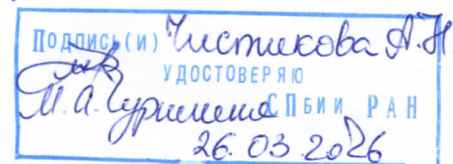 Подпись(и) Чистикова А.Н
УДОСТОВЕРЯЮ
М.А. СПбИИ РАН
26.03.2026